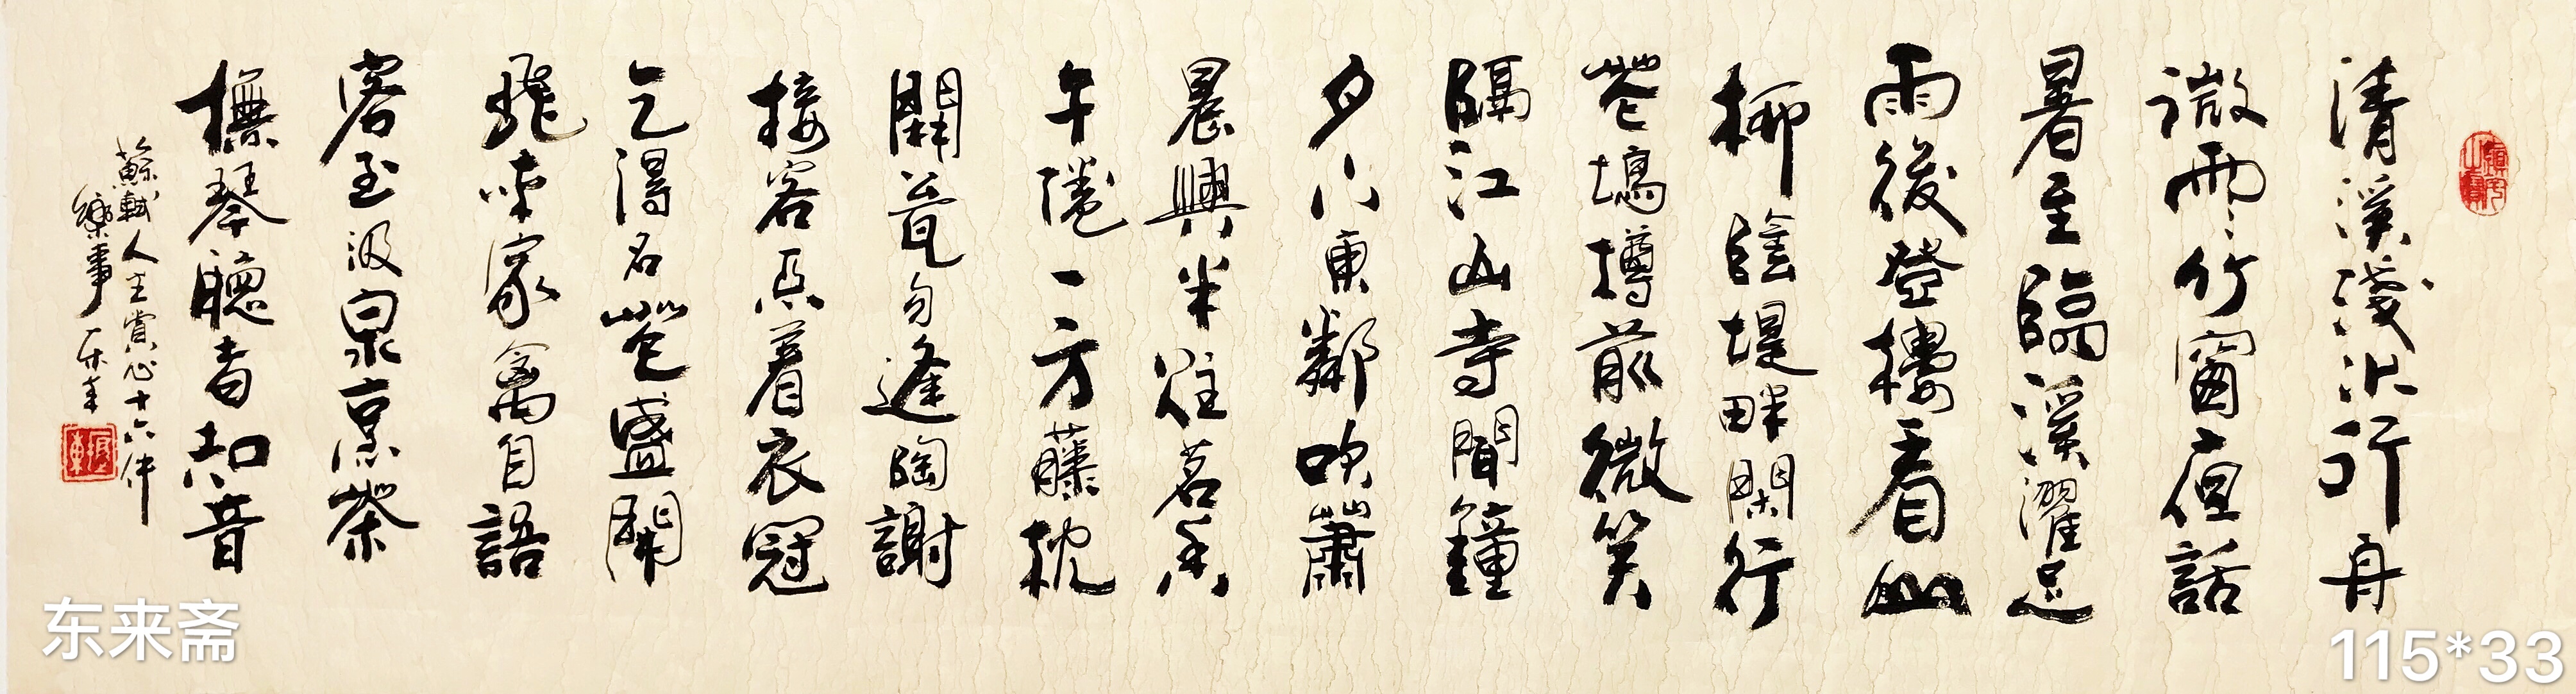 清溪淺水行舟
微雨竹窗夜話
暑至臨溪濯足
雨後登樓看山
柳陰堤畔閑行
花塢樽前微笑
隔江山寺聞鐘
月下東鄰吹簫
晨興半炷茗香
午倦一方藤枕
開甕勿逢陶謝
接客不着衣冠
乞得名花盛開
飛來家禽自語
客至汲泉烹茶
撫琴聽者知音
蘇軾人生賞心十六件
樂事
东来斋
115*33